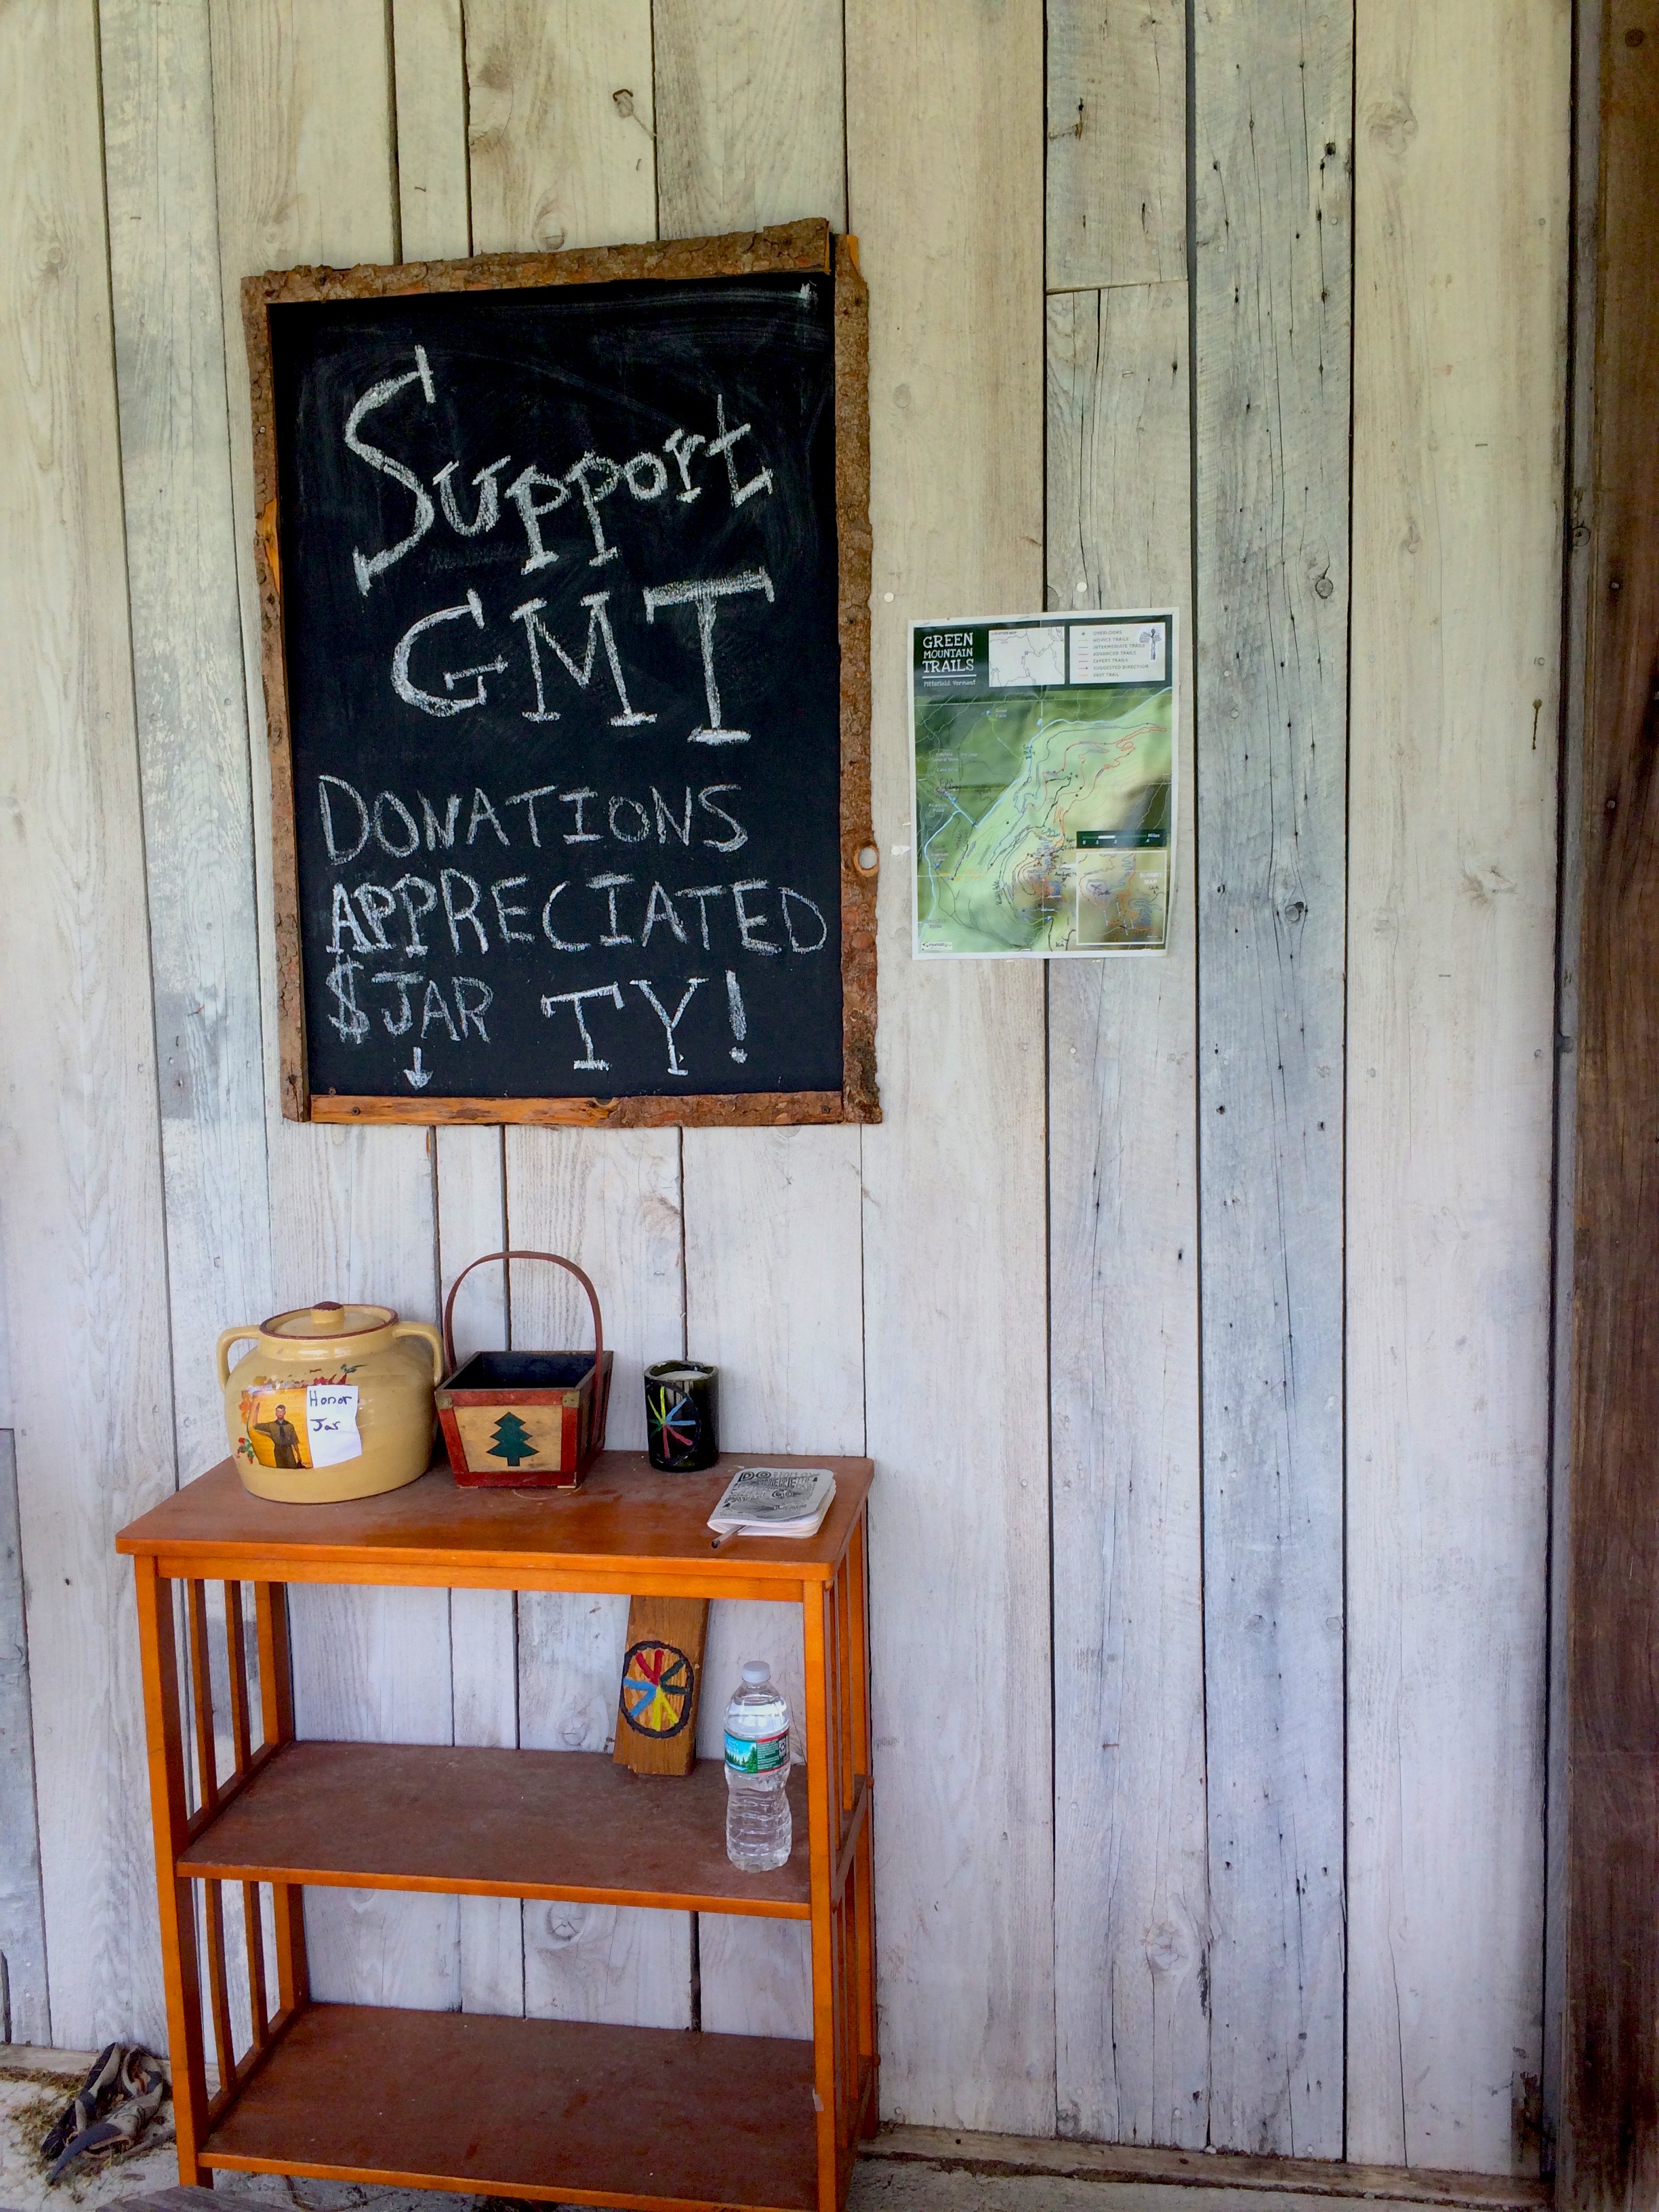 Support
GMT
DONATIONS
APPRECIATED
$JAR TY!
GREEN
MOUNTAIN
TRAILS
Pittsfield Vermont
OVERLOOKS
NOVICE TRAILS
INTERMEDIATE TRAILS
ADVANCED TRAILS
EXPERT TRAILS
SUGGESTED DIRECTION
Honor
Jar